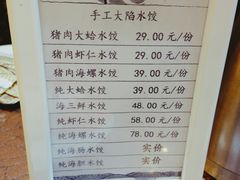 手工大陷水饺
猪肉大蛤水饺 29.00 元/份
猪肉虾仁水饺 29.00 元/份
猪肉海螺水饺 39.00 元/份
纯大蛤水饺 39.00 元/份
海三鲜水饺 48.00 元/份
纯虾仁水饺 58.00 元/份
纯海螺水饺 78.00 元/份
纯海肠水饺 实价
纯海胆水饺 实价